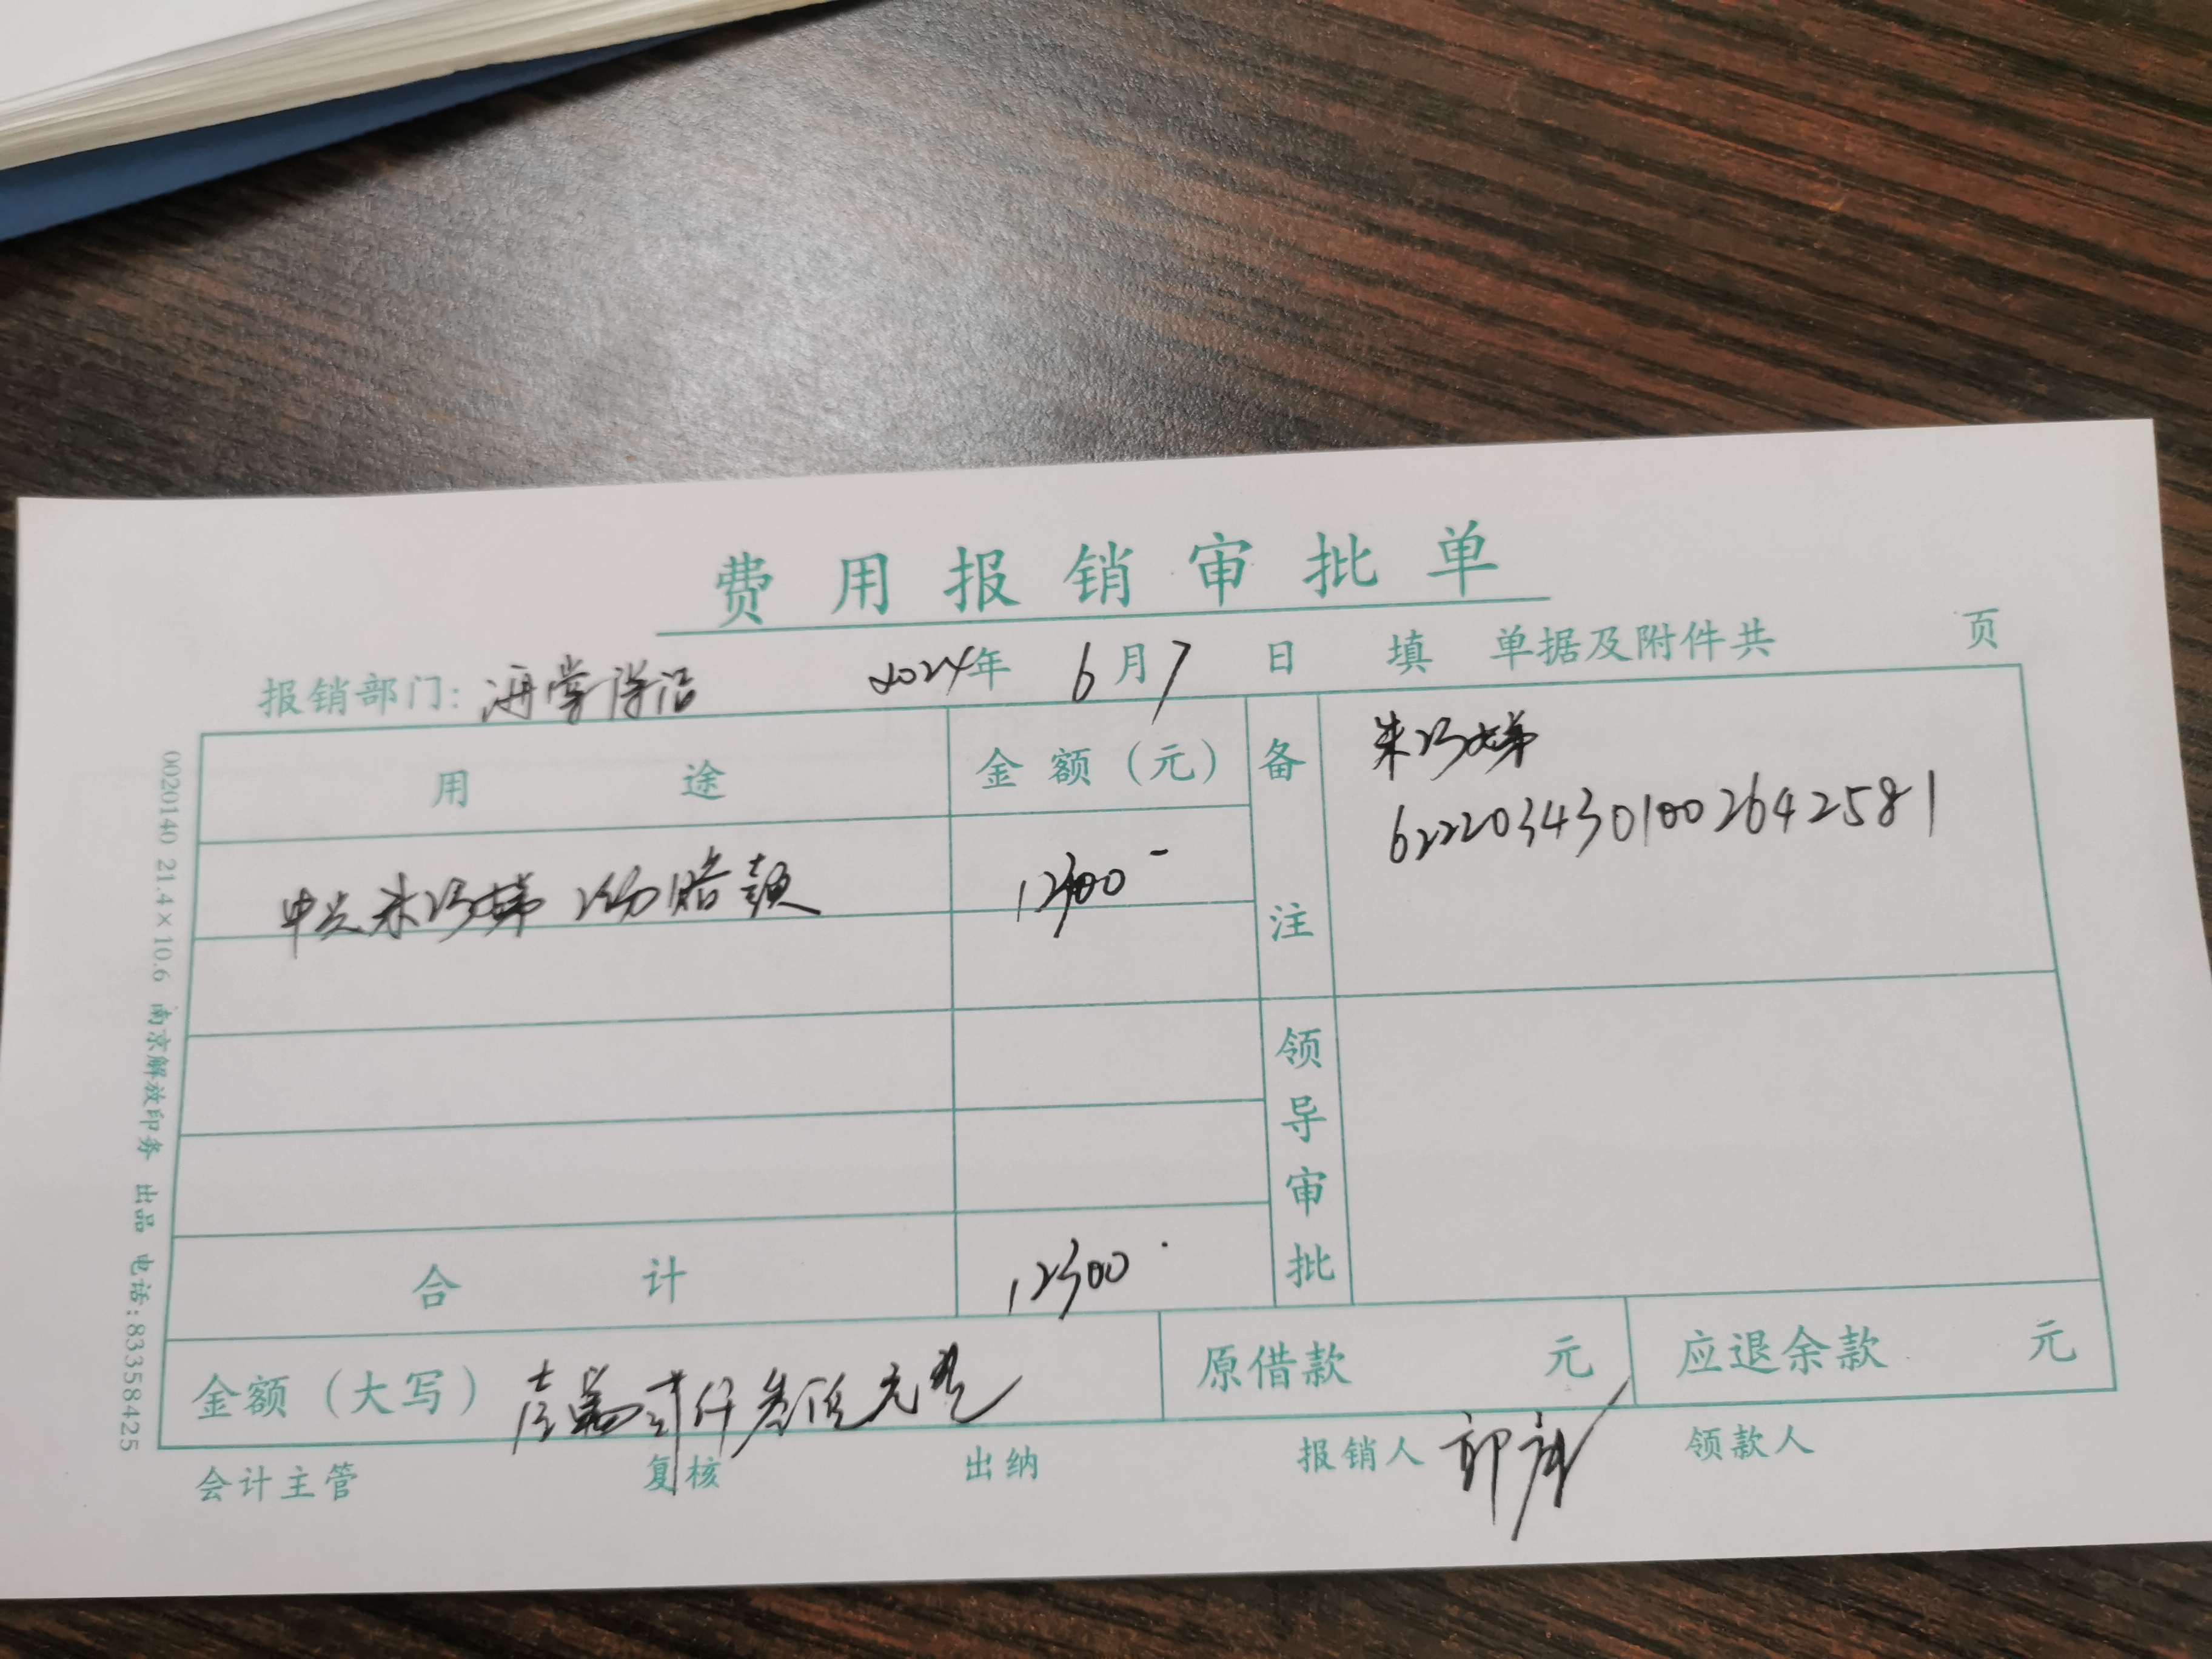 费用报销审批单
报销部门: 2024年 6月7日 填 单据及附件共 页
用途 金额（元） 备注
朱巧娣
6222034301002642581
朱巧娣 赔款 12300-
领导审批
合计 12300
金额（大写） 壹萬贰仟叁佰元整 原借款 元 应退余款 元
会计主管 复核 出纳 报销人 郭 领款人
0020140 21.4×10.6 南京解放印务 出品 电话:83358425